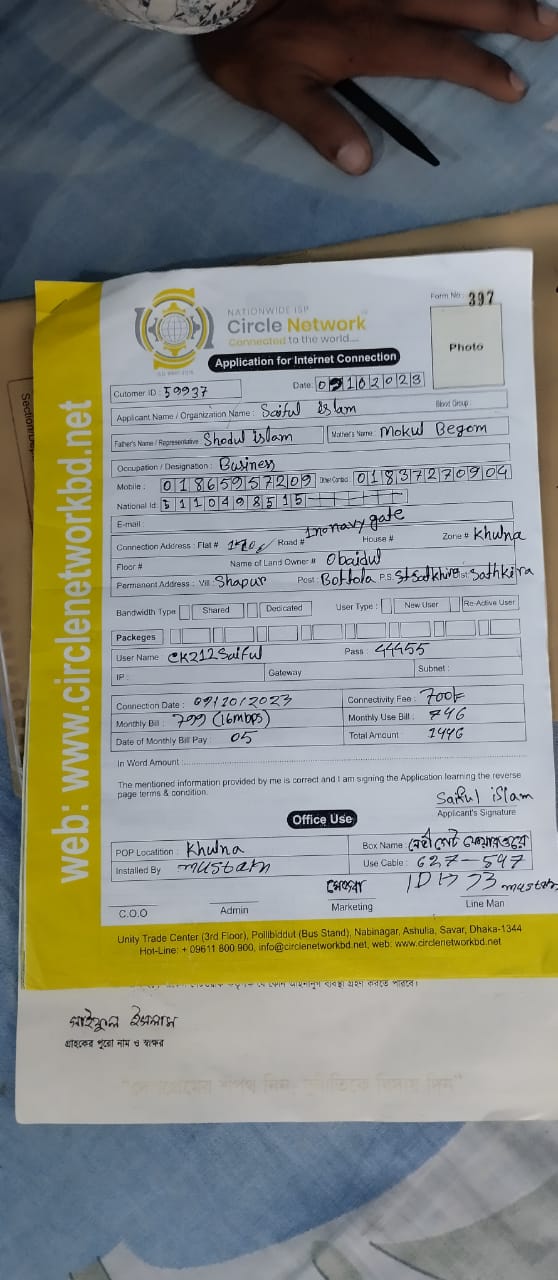 NATIONWIDE ISP
Circle Network
Connected to the world....
Form No : 397
Photo
Application for Internet Connection
Cutomer ID : 59937 Date: 2023
Applicant Name / Organization Name : Saiful islam Blood Group :
Father's Name / Representative : Shodul islam Mother's Name : Mokul Begom
Occupation / Designation : Business
Mobile : 01865957209 Other Contact : 01837270904
National Id: 5110498515
E-mail :
Connection Address : Flat # Road # navy gate House # Zone # Khulna
Floor # Name of Land Owner # Obaidul
Permanent Address : Vill : Shapur Post : Bottola P.S Dist: Sathkira
Bandwidth Type Shared Dedicated User Type : New User Re-Active User
Packeges
User Name CK212Saiful Pass : 44455
IP : Gateway Subnet :
Connection Date : 09/10/2023 Connectivity Fee : 700/-
Monthly Bill : 700 (16mbps) Monthly Use Bill : 746
Date of Monthly Bill Pay : 05 Total Amount 1446
In Word Amount
The mentioned information provided by me is correct and I am signing the Application learning the reverse
page terms & condition.
Saiful islam
Applicant's Signature
Office Use
POP Locatition : Khulna Box Name :
Installed By mustakn Use Cable : 627-597
ID
C.O.O Admin Marketing Line Man
Unity Trade Center (3rd Floor), Pollibiddut (Bus Stand), Nabinagar, Ashulia, Savar, Dhaka-1344
Hot-Line: + 09611 800 900, info@circlenetworkbd.net, web: www.circlenetworkbd.net
web: www.circlenetworkbd.net
সাইফুল ইসলাম
গ্রাহকের পুরো নাম ও স্বাক্ষর